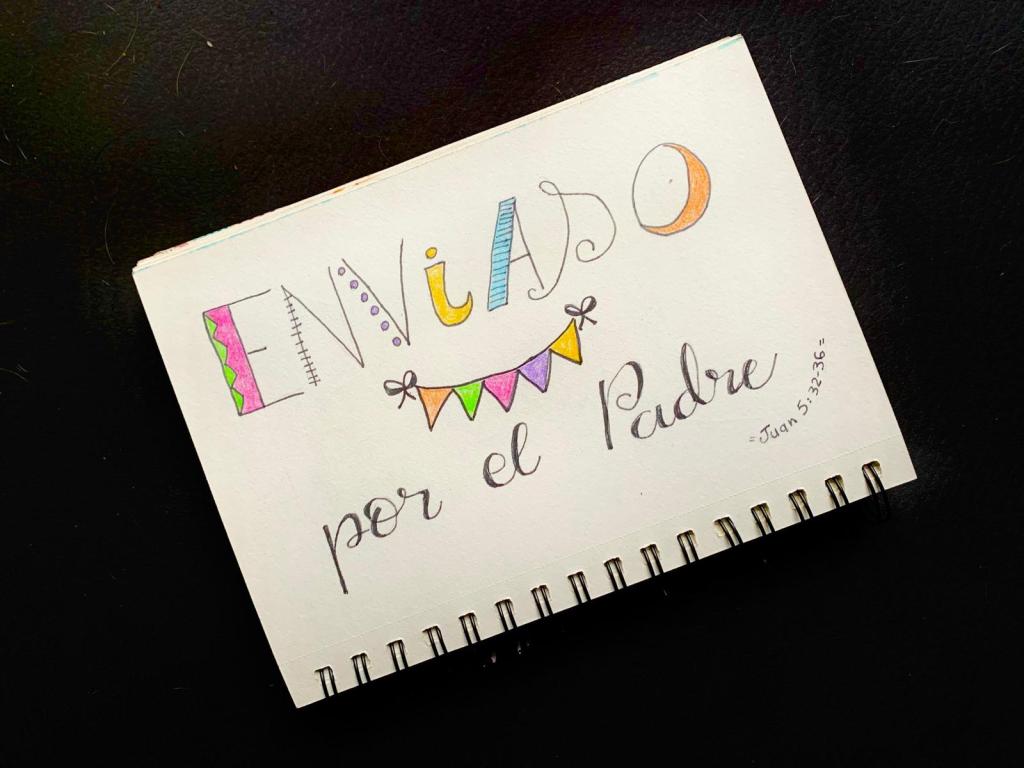 ENViADO
por el Padre
=Juan 5:32-36=